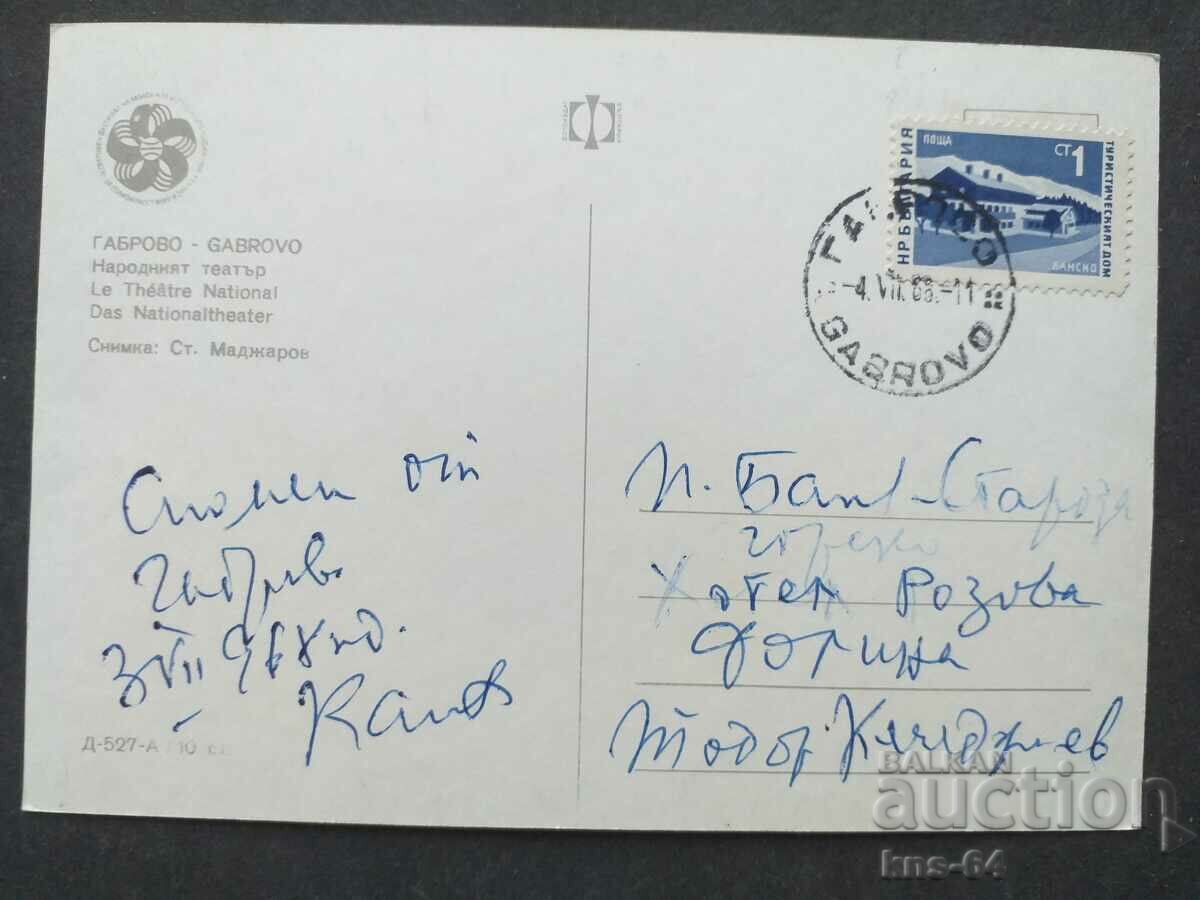 ГАБРОВО - GABROVO
Народният театър
Le Théâtre National
Das Nationaltheater
Снимка: Ст. Маджаров
НР БЪЛГАРИЯ
ПОЩА
СТ 1
ТУРИСТИЧЕСКИЯТ ДОМ
БАНСКО
ГАБРОВО
-4.VII.68.-11
GABROVO
Спомен от
Габрово
3 VII 968 год.
п. Баня - Староза
горско
Хотел Розова
долина
Тодор
Д-527-А 10
BALKAN
auction
kns-64